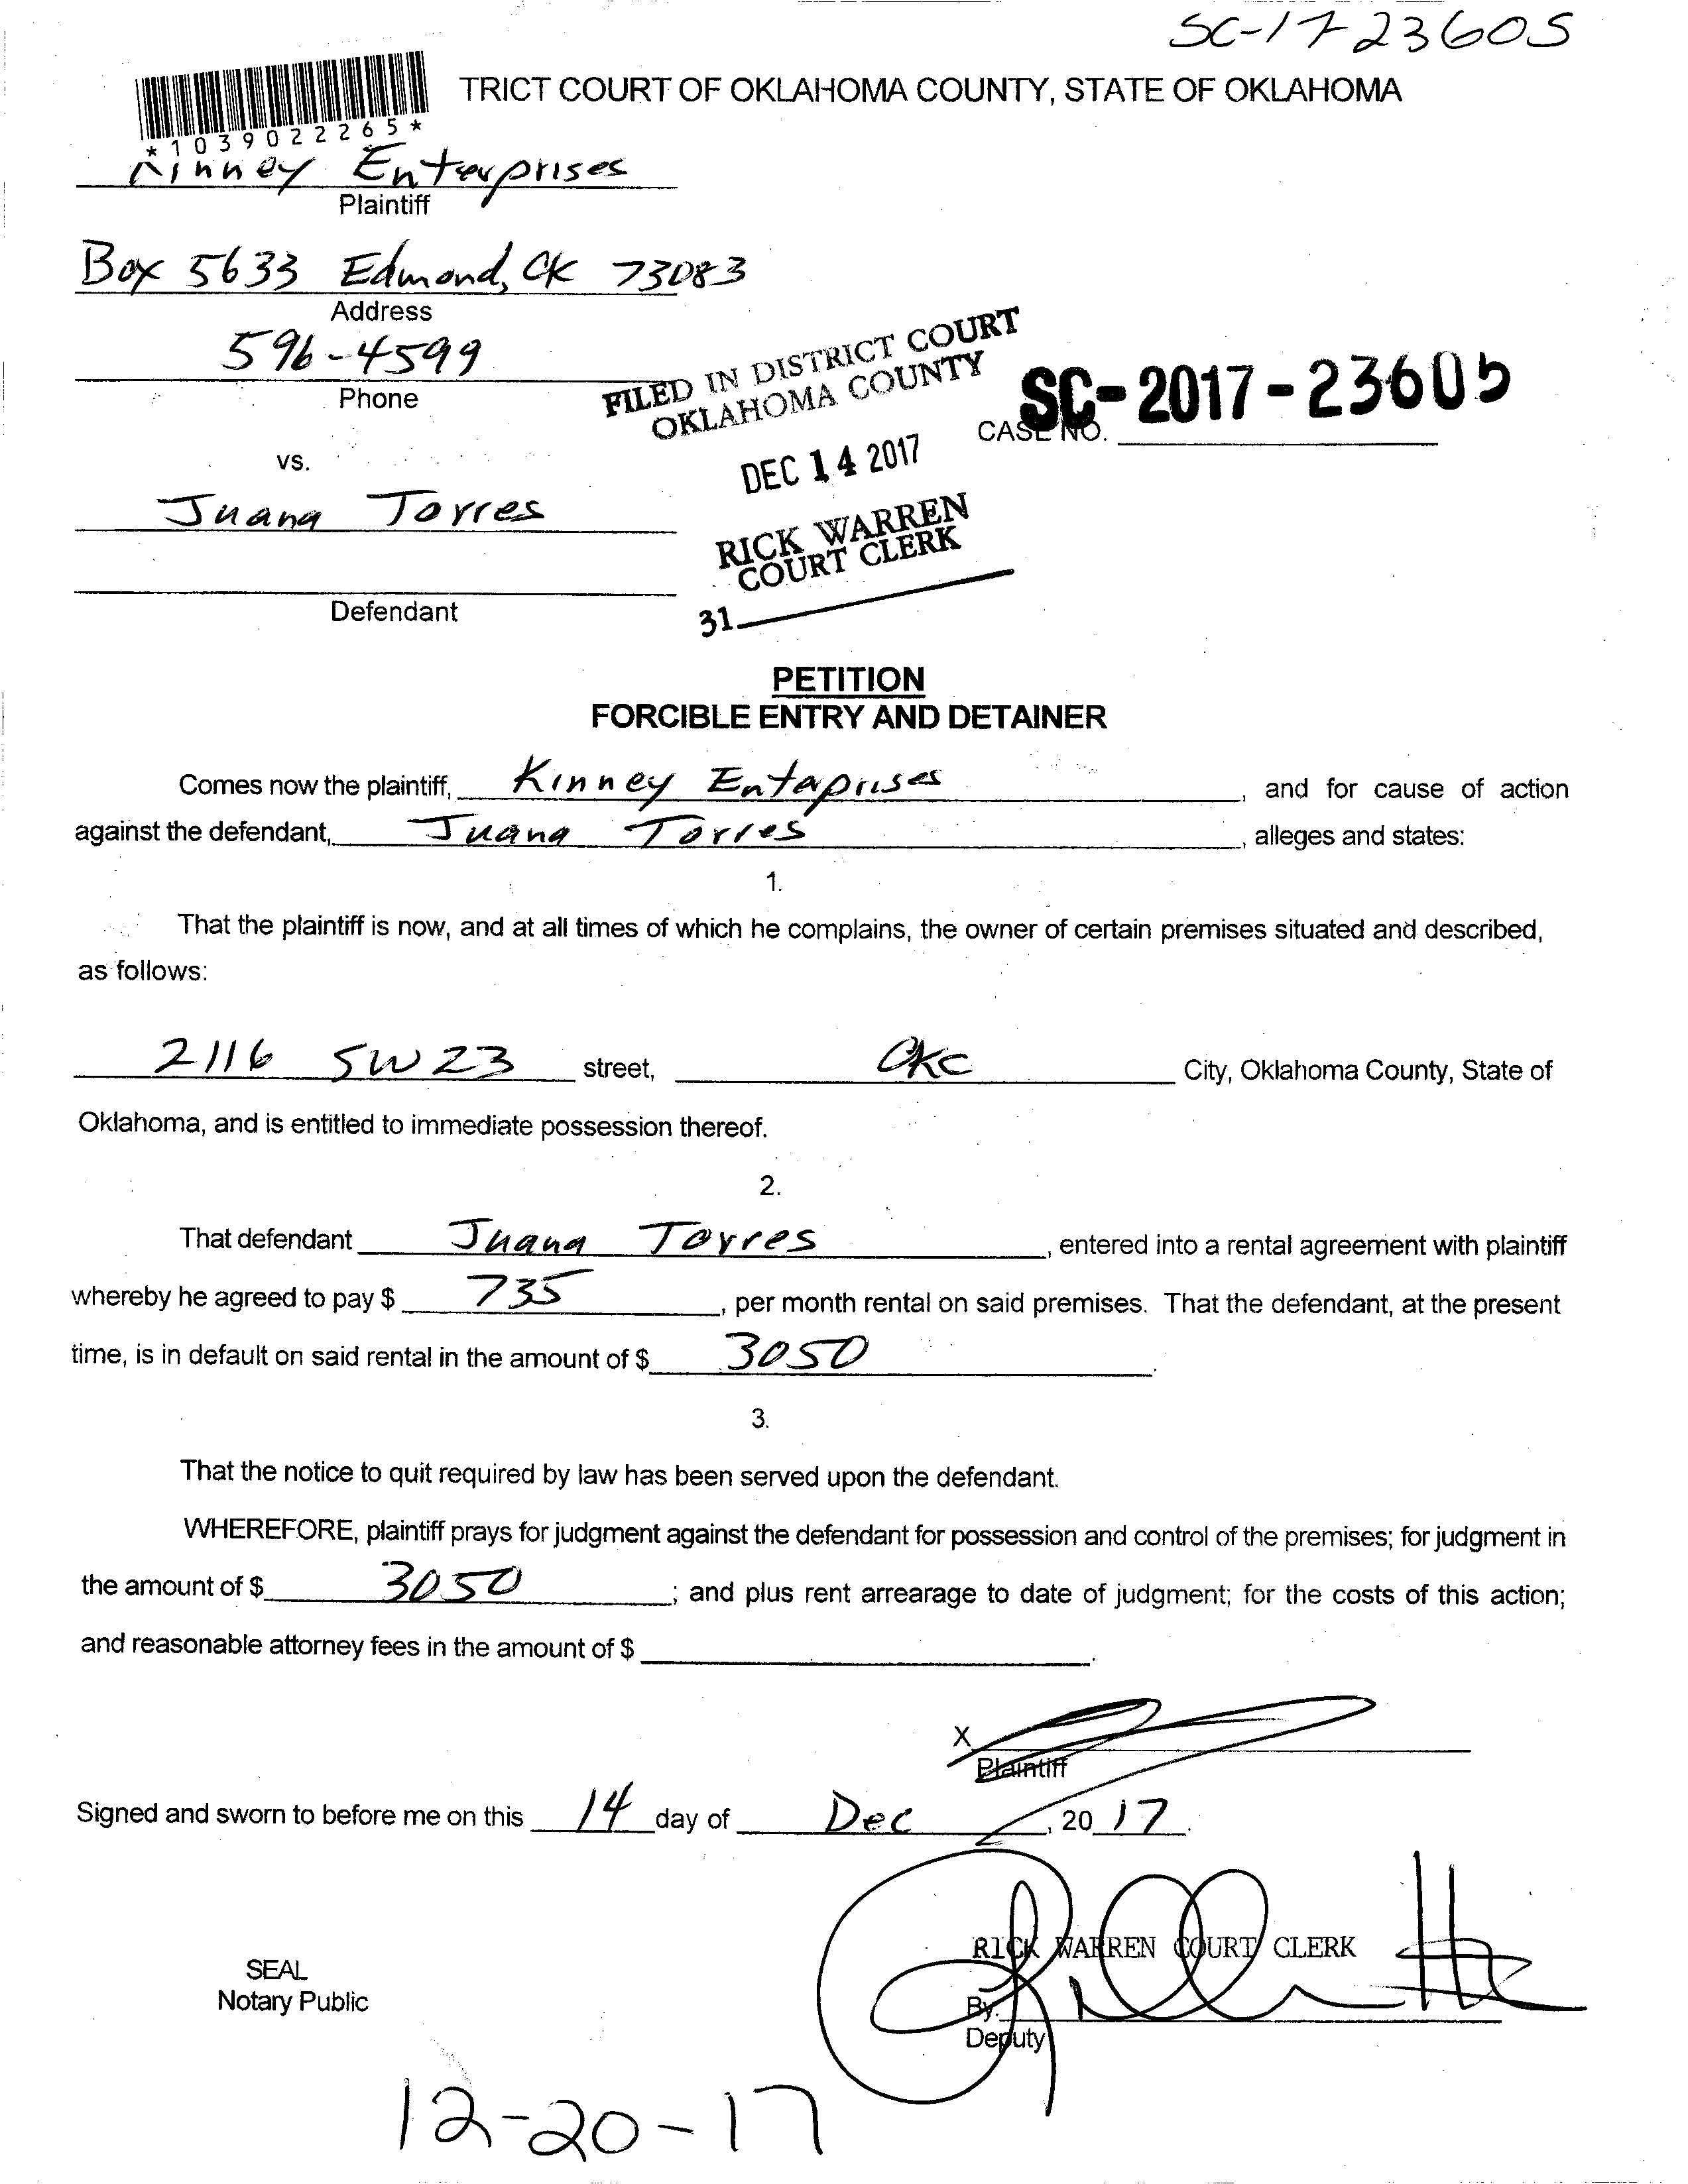 SC-17 23605
TRICT COURT OF OKLAHOMA COUNTY, STATE OF OKLAHOMA
*1039022265*
Kinney Enterprises
Plaintiff
Box 5633 Edmond, OK 73083
Address
596-4599
Phone
FILED IN DISTRICT COURT
OKLAHOMA COUNTY
SC-2017-23605
CASE NO.
vs.
DEC 14 2017
Juana Torres
RICK WARREN
COURT CLERK
Defendant
31
PETITION
FORCIBLE ENTRY AND DETAINER
Comes now the plaintiff, Kinney Entaprises, and for cause of action
against the defendant, Juana Torres, alleges and states:
1.
That the plaintiff is now, and at all times of which he complains, the owner of certain premises situated and described,
as follows:
2116 SW 23 street, OKC City, Oklahoma County, State of
Oklahoma, and is entitled to immediate possession thereof.
2.
That defendant Juana Torres, entered into a rental agreement with plaintiff
whereby he agreed to pay $ 735, per month rental on said premises. That the defendant, at the present
time, is in default on said rental in the amount of $ 3050.
3.
That the notice to quit required by law has been served upon the defendant.
WHEREFORE, plaintiff prays for judgment against the defendant for possession and control of the premises; for judgment in
the amount of $ 3050; and plus rent arrearage to date of judgment; for the costs of this action;
and reasonable attorney fees in the amount of $ .
X
Plaintiff
Signed and sworn to before me on this 14 day of Dec, 20 17.
RICK WARREN COURT CLERK
SEAL
Notary Public
By.
Deputy
12-20-17